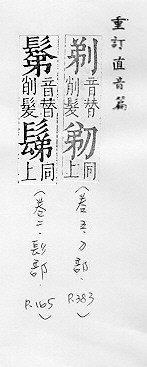 重訂直音篇
剃音替削髮同上
(卷五.刀部.P.383)
鬀音替削髮同上
(卷二.髟部.P.165)